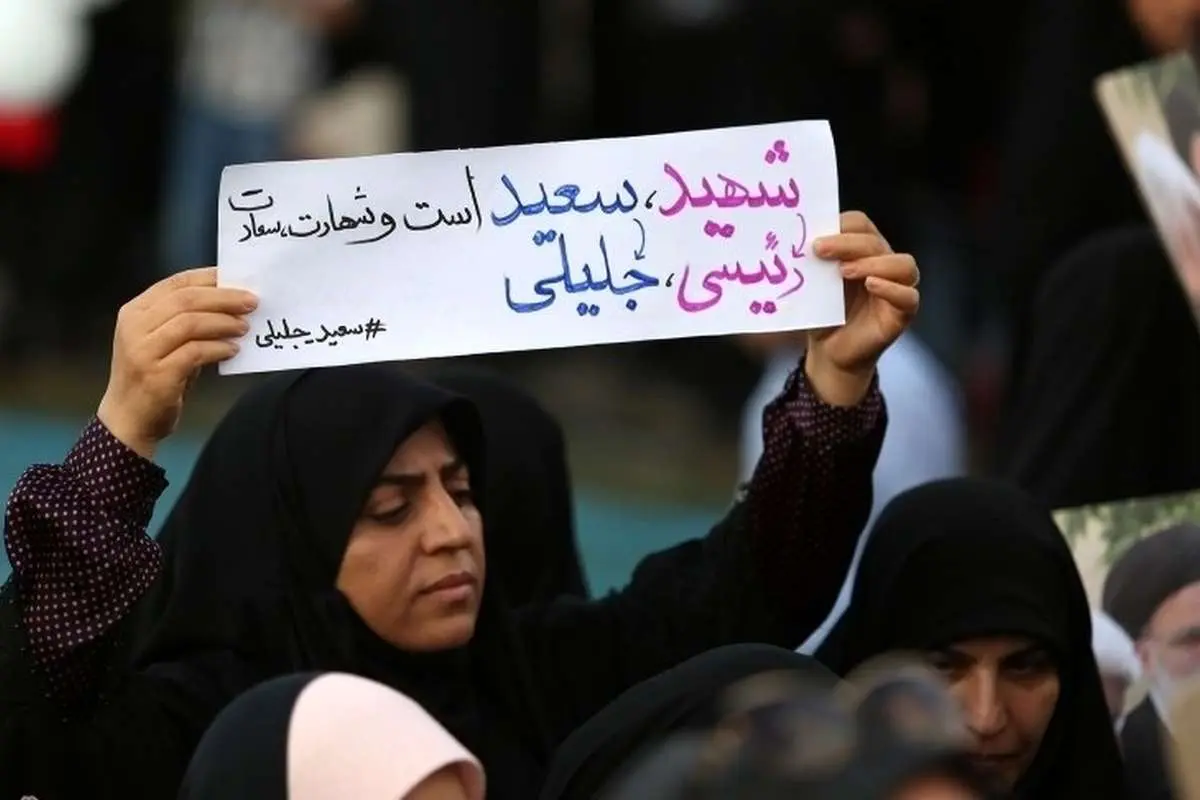 شهید، سعید است و شهادت، سعادت
رئیسی، جلیلی
#سعید_جلیلی